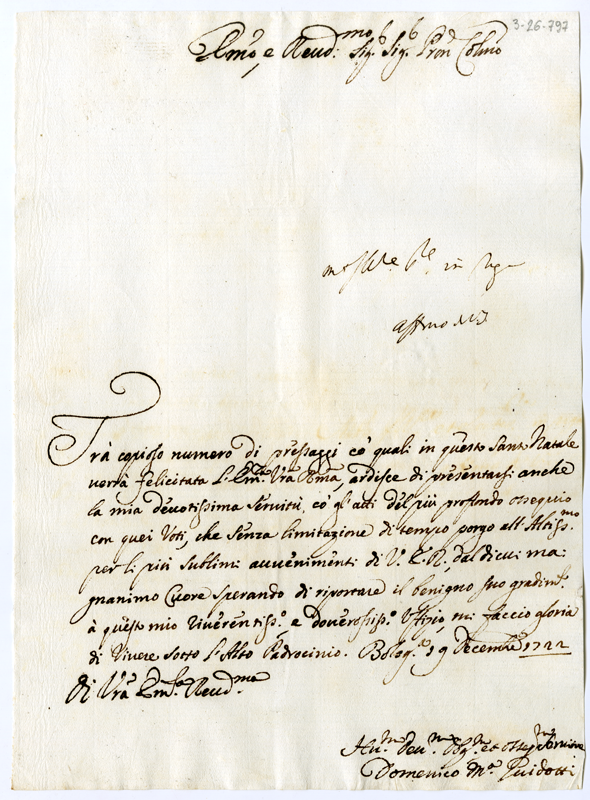 3-26-797
Emo, e Reud:mo Sig.r Sig.r Pron Colmo
in
Trà copioso numero di pressaggi co' quali in questo Santo Natale
verrà felicitata l'Emza Vra Rma, ardisce di presentarsi anche
la mia deuotissima seruitù, co' gl'atti del più profondo ossequio
con quei Voti, che senza limitazione di tempo porgo all'Altiss.mo
per li più sublimi auuenimenti di V. E. R. dal di cui ma:
gnanimo Cuore sperando di riportare il benigno suo gradim.to
à questo mio riuerentiss.o e doverosiss.o Uffizio, mi faccio gloria
di Viuere sotto l'Alto Padrocinio. Bolog.a 19 Decembre 1722
Di Vra Em.za Reud.ma
Hu.mo deu.mo obg.mo et osseq.mo Seruitore
Domenico M.a Guidotti